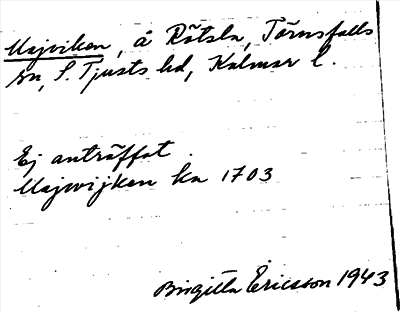 Majviken, å Rötsla, Törnsfalls
sn, S. Tjusts hd, Kalmar l.
Ej anträffat.
Majwijken ka 1703
Birgitta Ericsson 1943